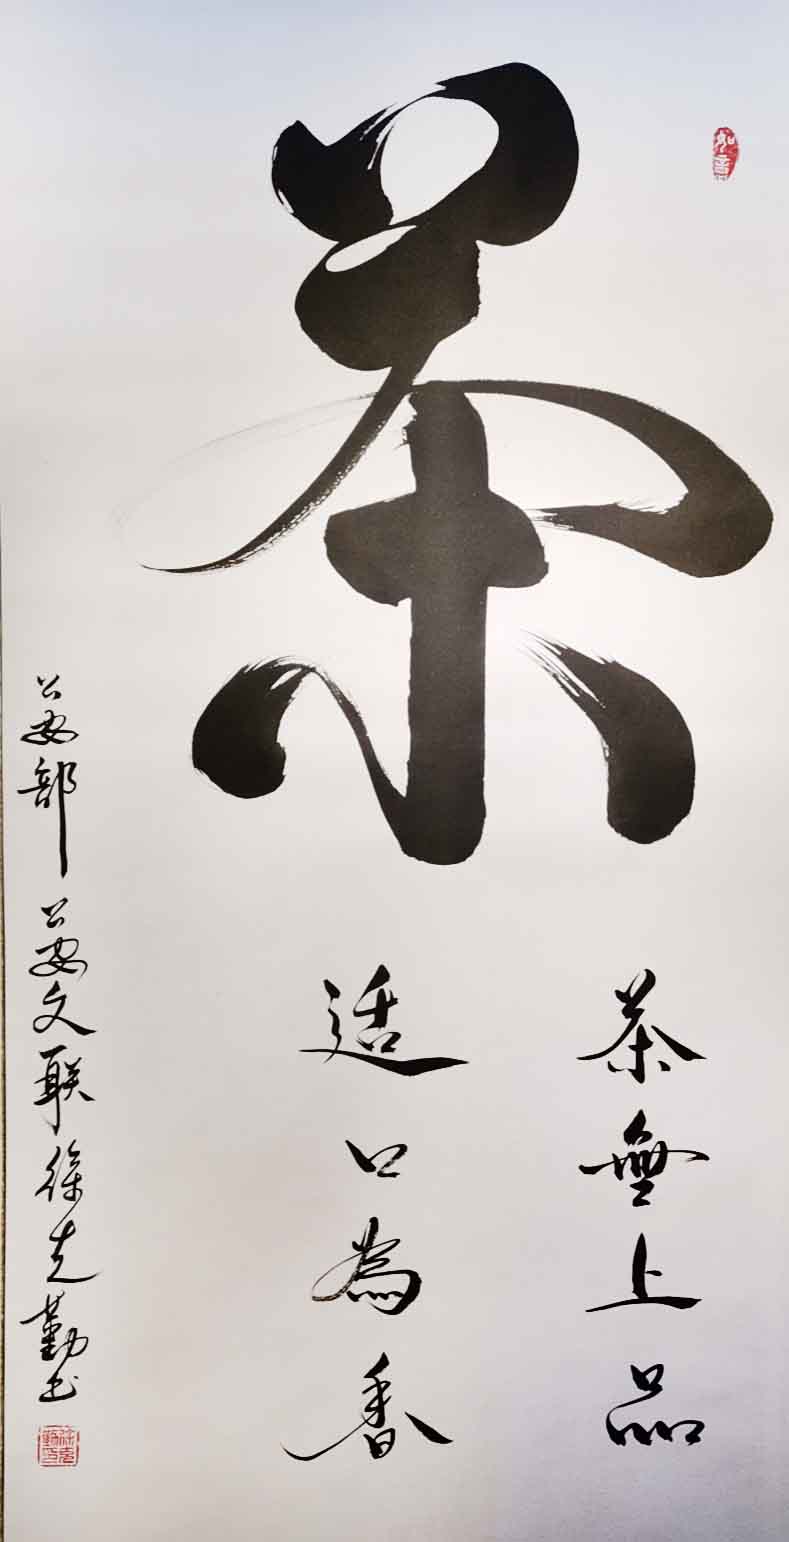 如意
茶
茶無上品
适口為香
公安部 公安文联徐克勤书